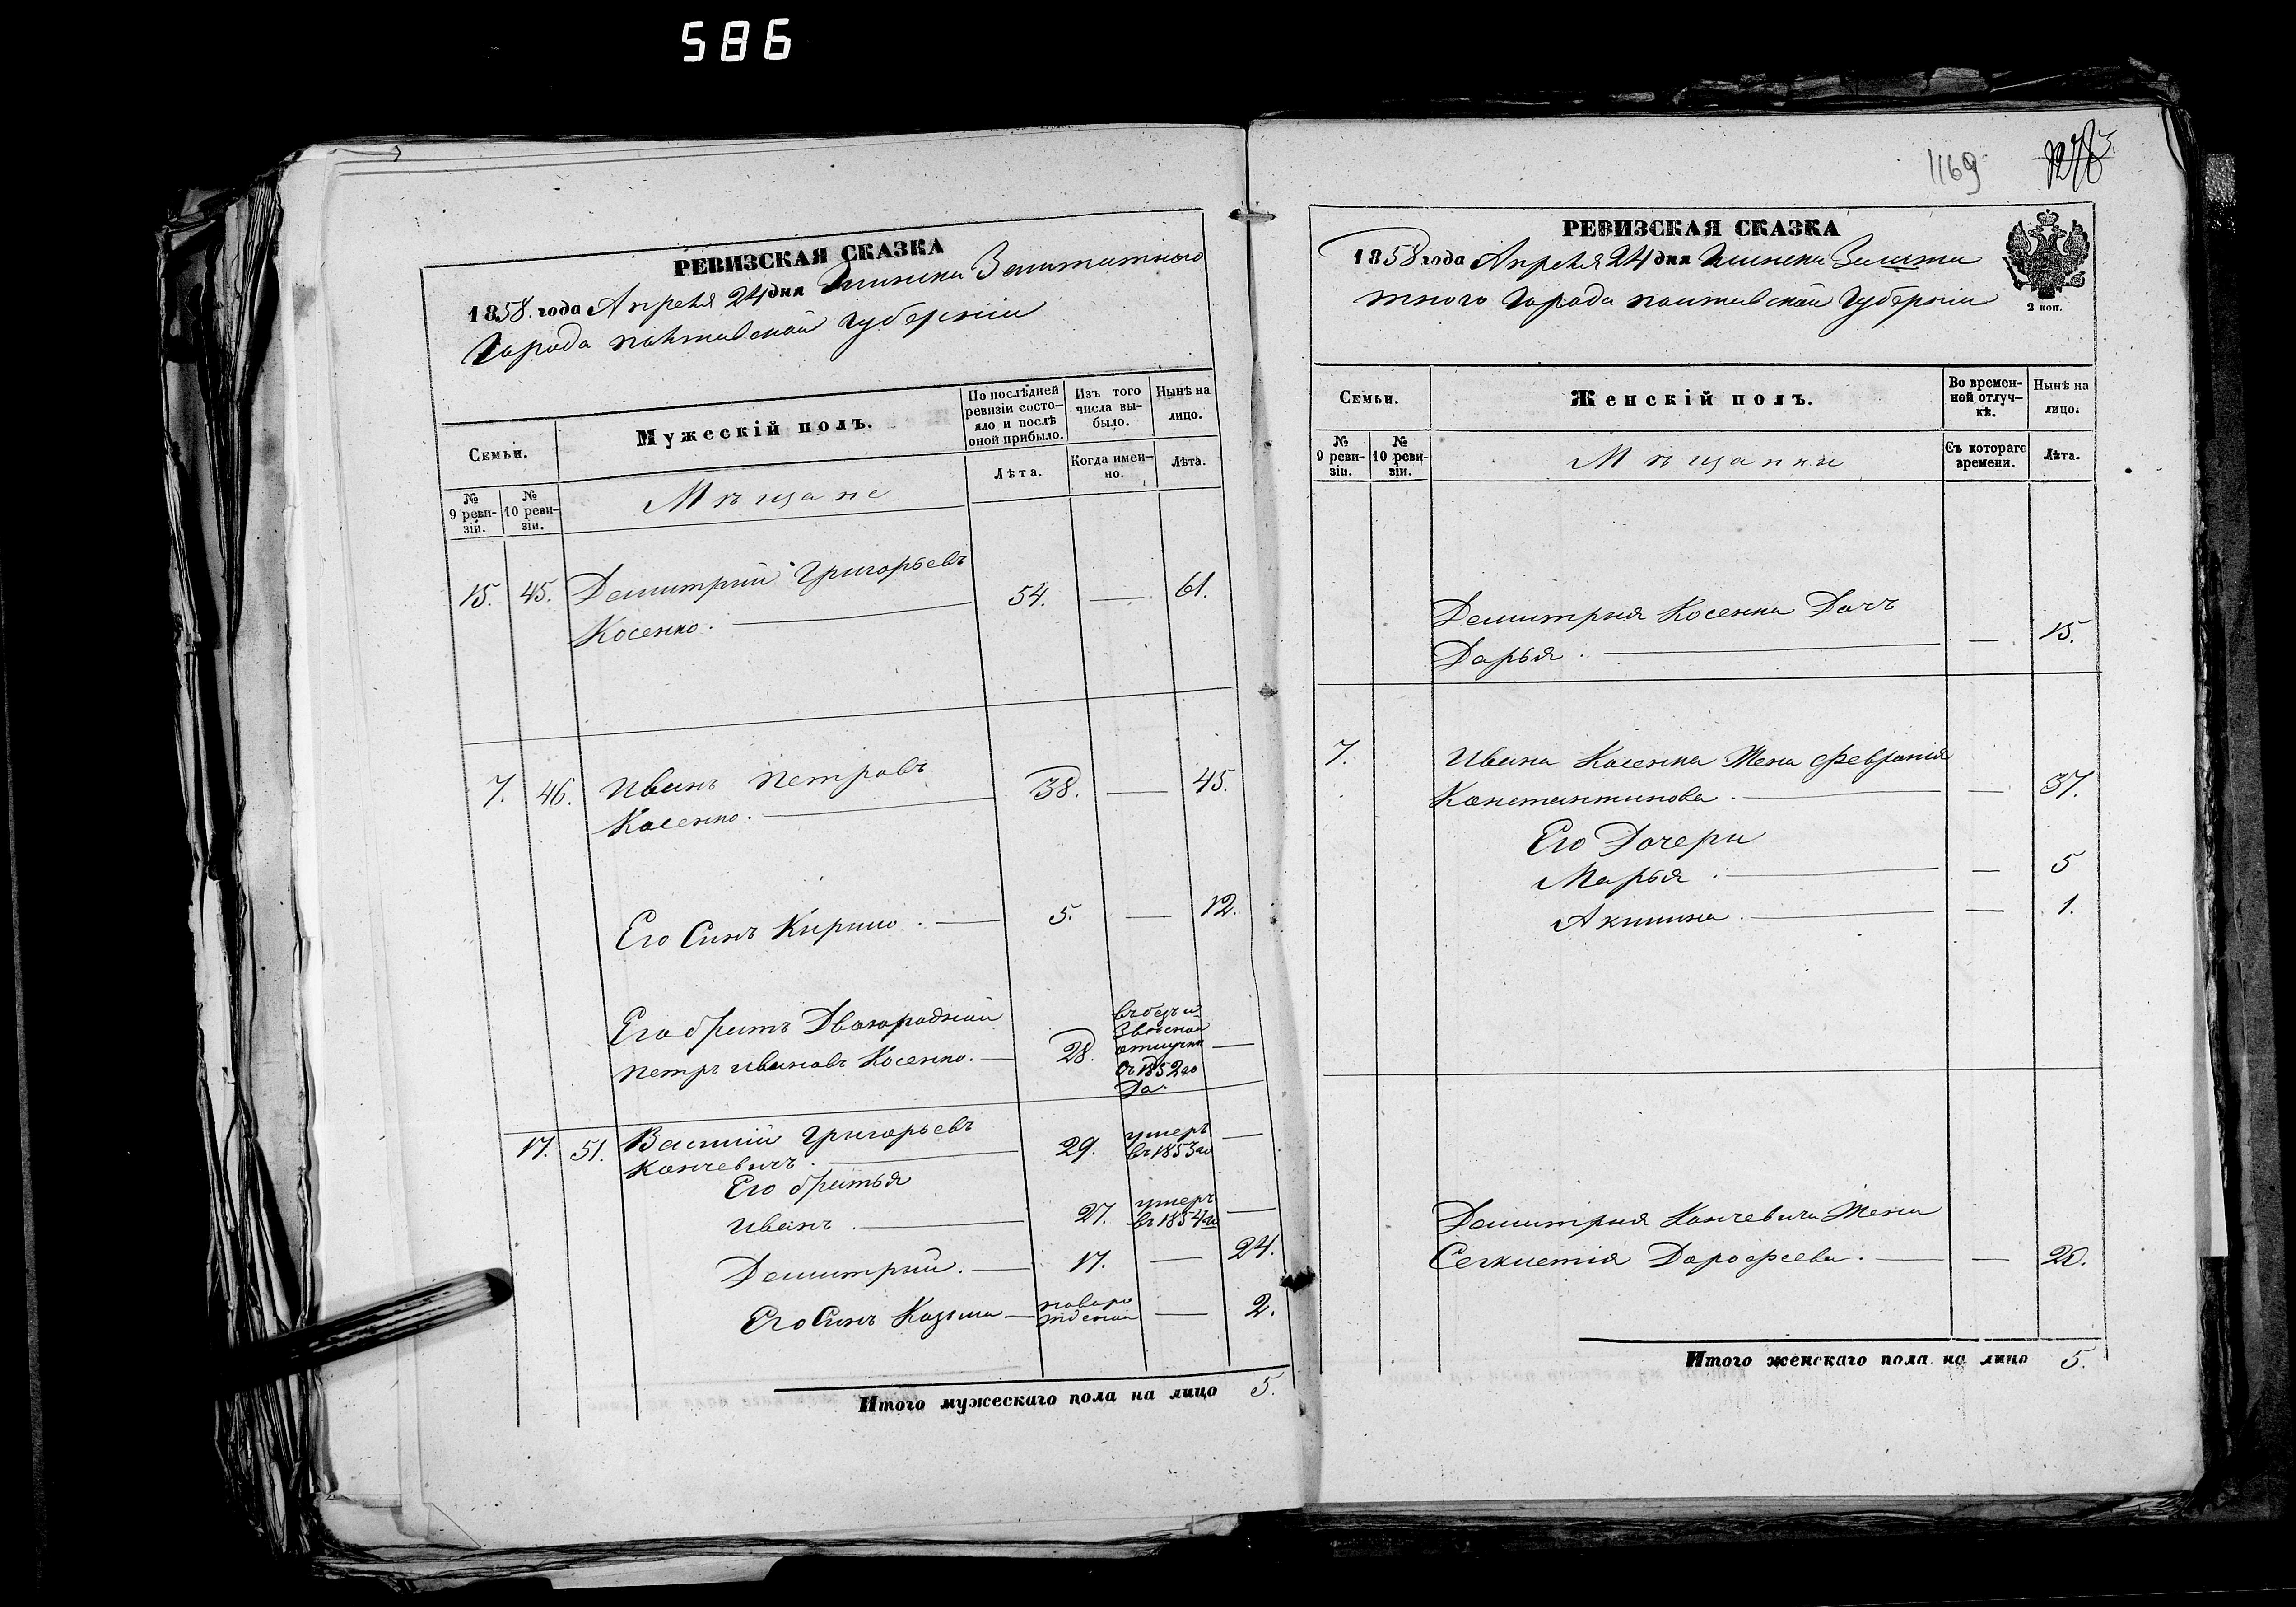 586
РЕВИЗСКАЯ СКАЗКА
1858. года Апреля 24 дня Глинска Заштатного
Города полтавской губерніи
Семьи.
Мужескій полъ.
По послѣдней ревизіи состояло и послѣ оной прибыло.
Изъ того числа выбыло.
Нынѣ на лицо.
№ 9 ревизіи.
№ 10 ревизіи.
Мѣщане
Лѣта.
Когда именно.
Лѣта.
15. 45. Демитрий Григорьевъ
Косенко. — 54. — 61.
7. 46. Иванъ Петровъ
Косенко. — 38. — 45.
Его Синъ Кирило. — 5. — 12.
Его братъ Двоюродний
Петръ Ивановъ Косенко. — 28.
въ безъи
звесной
отлучки
съ 1852 го
да. —
17. 51. Василій Григорьевъ
Канчевичъ. — 29. умеръ въ 1853 го —
Его братья
Иванъ. — 27. умеръ въ 1854 го —
Демитрий. — 17. — 24.
Его Синъ Козьма — новоро
жденній — 2.
Итого мужескаго пола на лицо 5.
1169
РЕВИЗСКАЯ СКАЗКА
1858 года Апреля 24 дня Глинска Зашта
тного Города полтавской Губерніи
2 коп.
Семьи.
Женскій полъ.
Во временной отлучкѣ.
Нынѣ на лицо.
№ 9 ревизіи.
№ 10 ревизіи.
Мѣщанки
Съ котораго времени.
Лѣта.
Демитрия Косенка Дочъ
Дарья. — — 15.
7. Ивана Косенка Жена Февронія
Константинова. — — 37.
Его Дочери
Марья. — — 5
Акилина. — — 1.
Демитрия Канчевича Жена
Дорофеева. — — 20.
Итого женскаго пола на лицо 5.